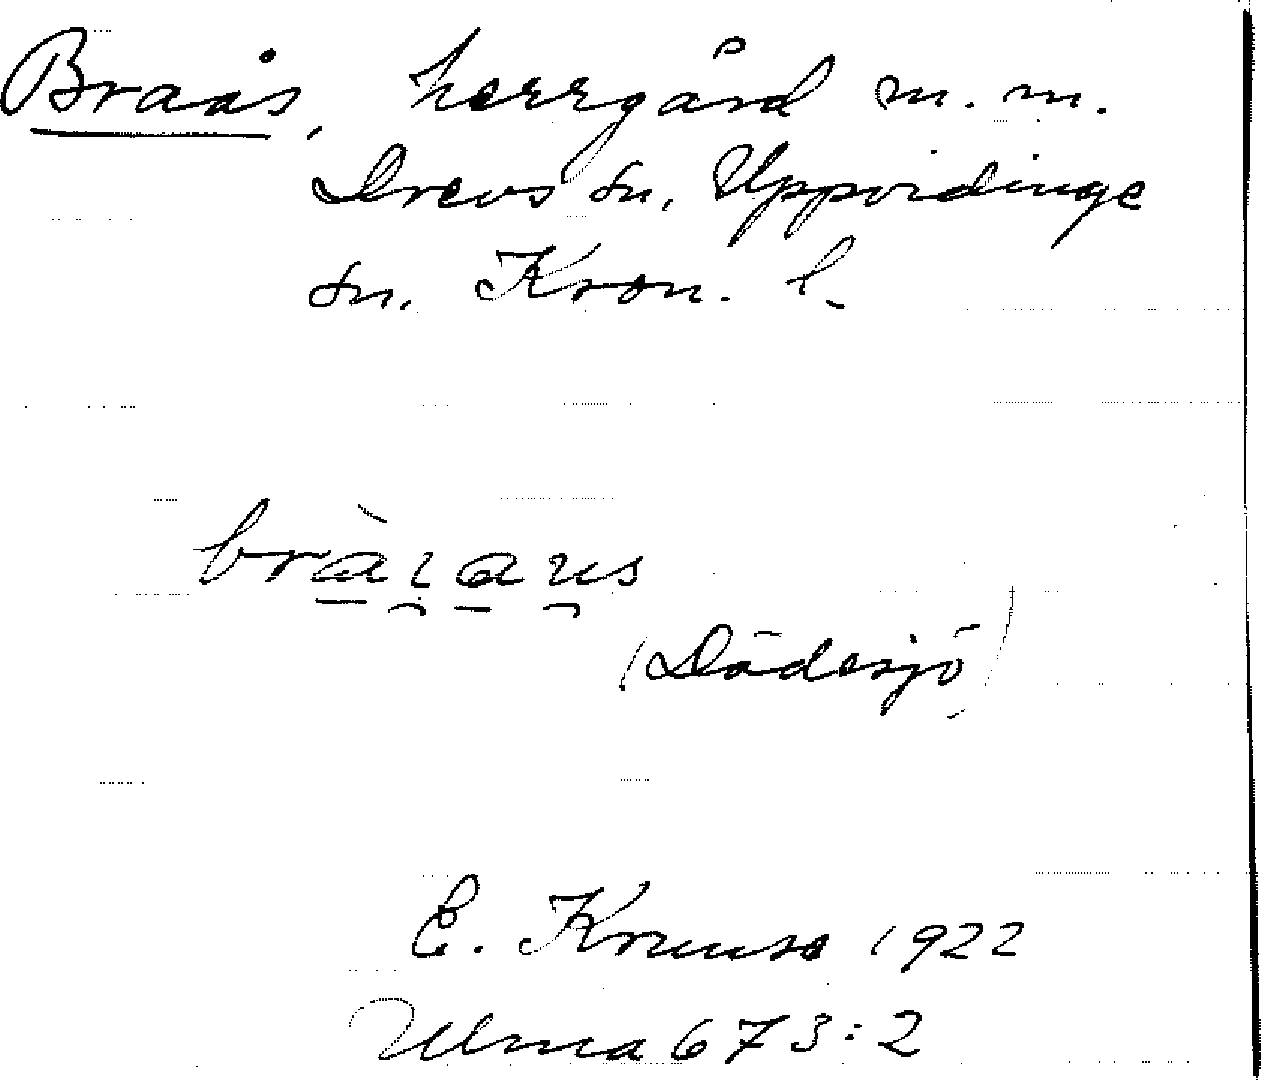 Braås, herrgård m.m.
Drevs sn, Uppvidinge
sn. Kron. l.
(Dädesjö)
E. Kruuse 1922
Ulma 673:2